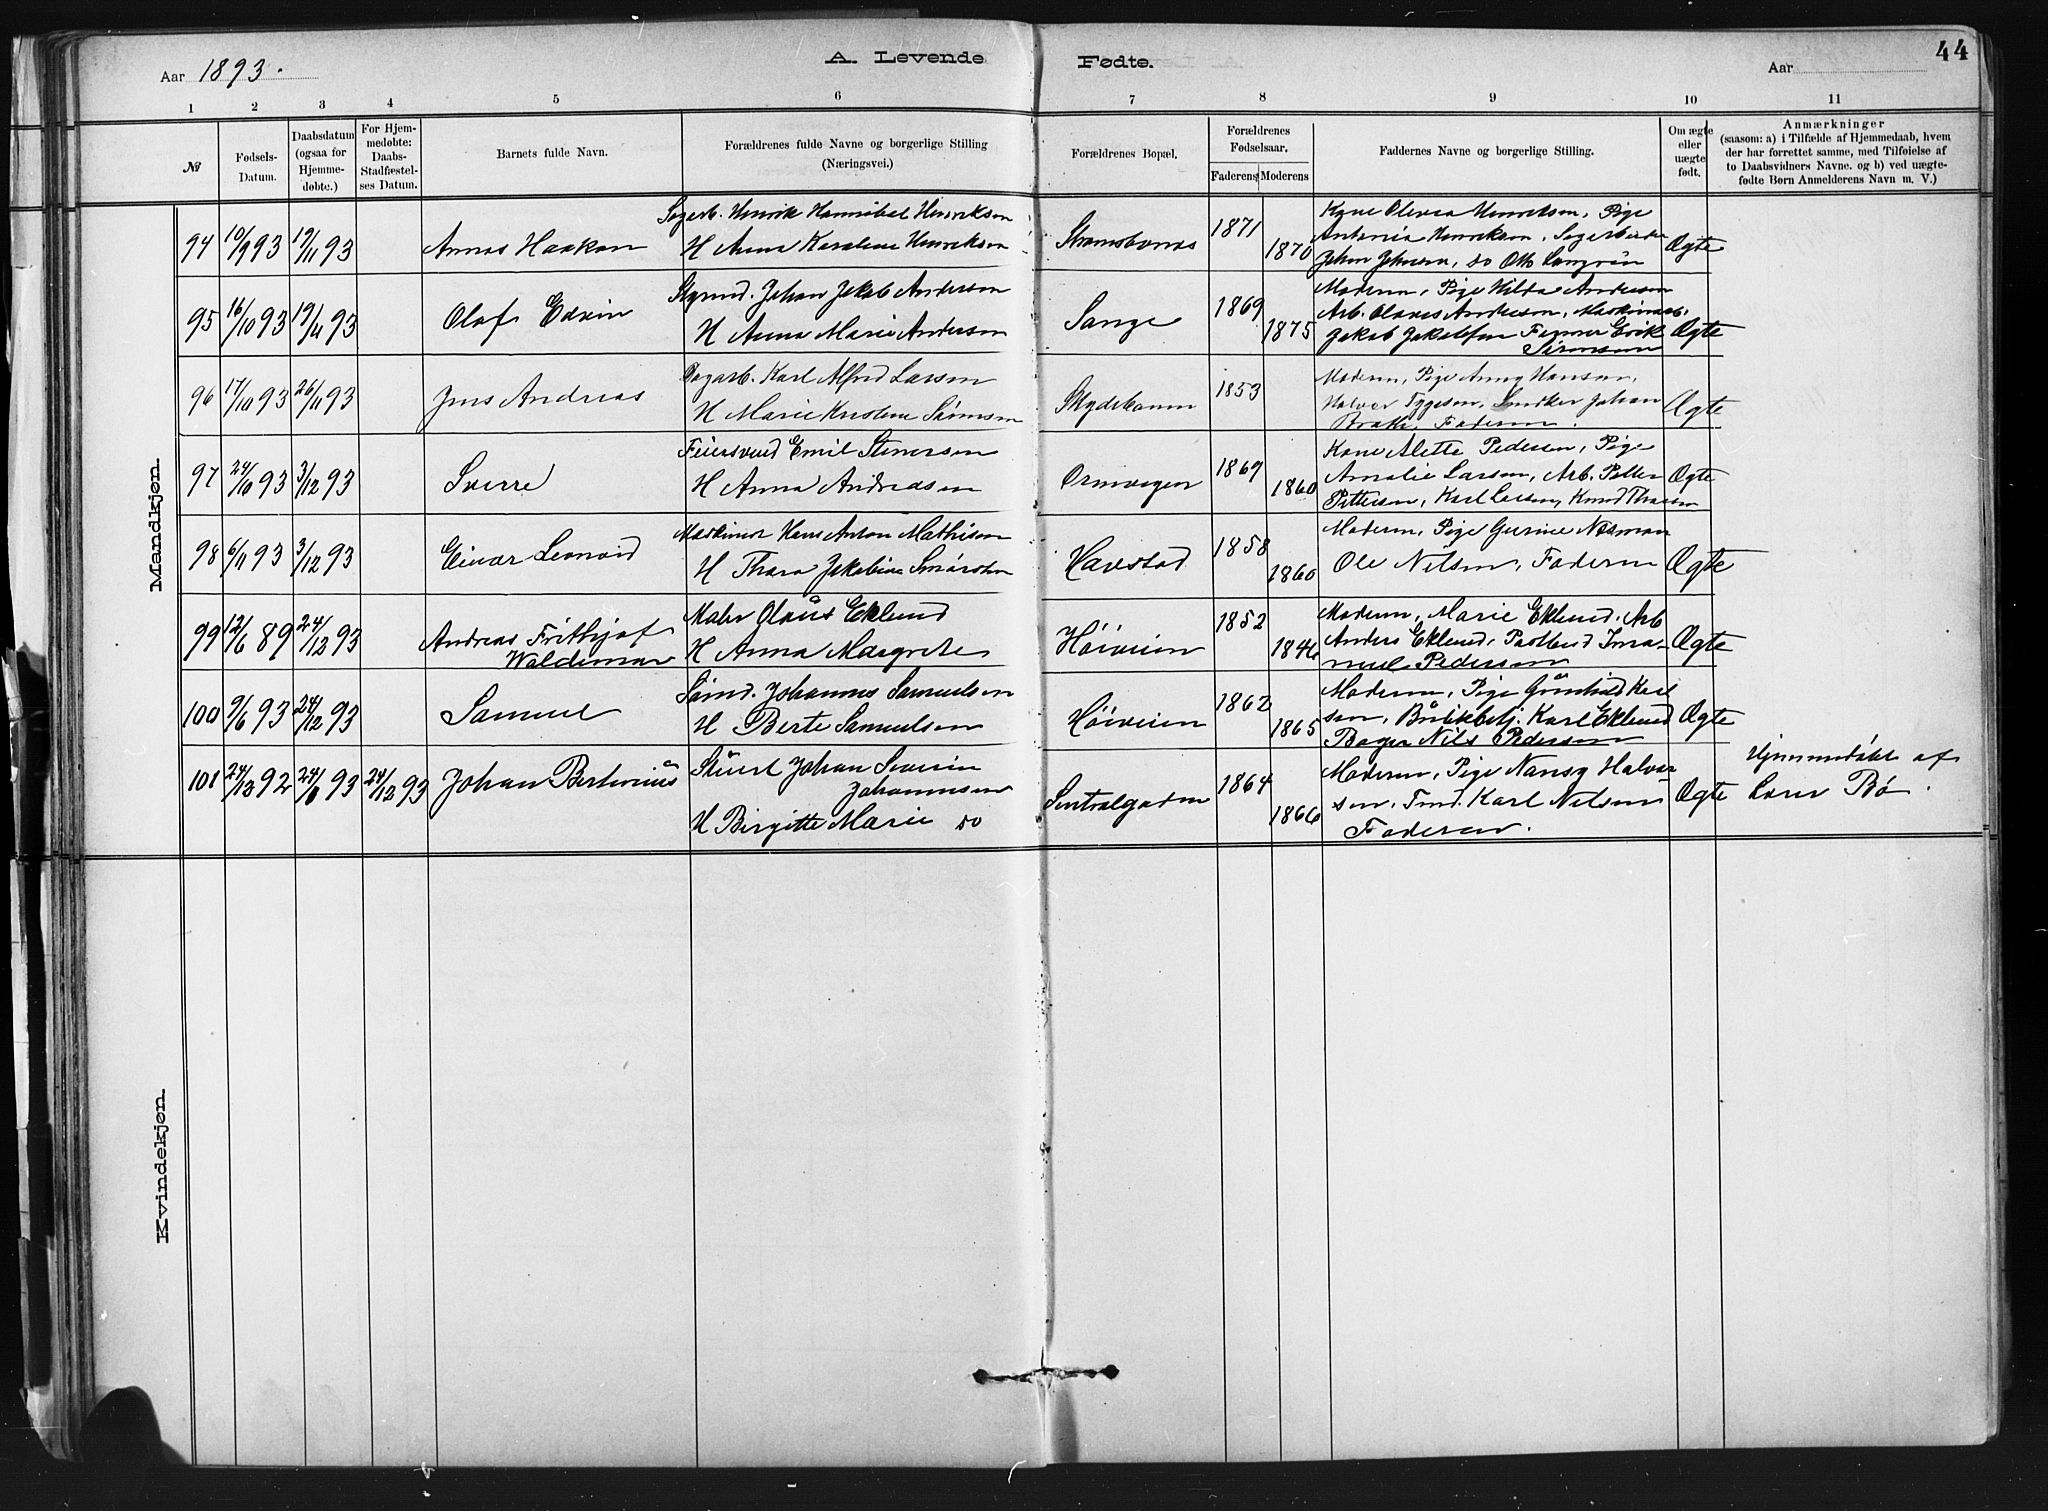 44
Aar 1893.
A. Levende Fødte.
Aar
1 2 3 4 5 6 7 8 9 10 11
№
Fødsels-Datum.
Daabsdatum (ogsaa for Hjemmedøbte.)
For Hjemmedøbte: Daabs-Stadfæstelses Datum.
Barnets fulde Navn.
Forældrenes fulde Navne og borgerlige Stilling (Næringsvei.)
Forældrenes Bopæl.
Forældrenes Fødselsaar.
Faderens Moderens
Faddernes Navne og borgerlige Stilling.
Om ægte eller uægte født.
Anmærkninger
(saasom: a) i Tilfælde af Hjemmedaab, hvem
der har forrettet samme, med Tilføielse af
to Daabsvidners Navne. og b) ved uægte-
fødte Børn Anmelderens Navn m. V.)
Mandkjøn.
94 10/9 93 19/11 93 Haakon
Sagarb. Henrik Hannibal Henriksen
H Anna Karoline Henriksen
1871 1870
Kone Olevia Henriksen, Pige
Antonia Henriksen, Sagarbeider
Johan Johnsen, do Otto
Ægte
95 16/10 93 19/11 93 Olaf Edvin
Johan Jakob Andersen
H Anna Marie Andersen
Sange 1869 1875
Moderen, Pige Hilda Andersen
Arb. Olaves Andersen, Maskinarb.
Jakob Erik
Simonsen
Ægte
96 17/10 93 26/11 93 Jens Andreas
Sagarb. Karl Alfred Larsen
H Marie Kristine
1853
Moderen, Pige Anny Hansen,
Halvor Tygesen, Snedker Johan
Faderen.
Ægte
97 24/10 93 3/12 93 Sverre
Feiersvend Emil Stenersen
H Anna Andreasen
1869 1860
Kone Alette Pedersen, Pige
Amalie Larsen, Arb. Petter
Pettersen, Karl Larsen, Knud
Ægte
98 6/11 93 3/12 93 Einar Leonard
Maskinist Hans Anton Mathisen
H Thara Jakobine
Havstad 1858 1860
Moderen, Pige Gurine Næsman
Ole Nilsen, Faderen
Ægte
99 12/6 89 24/12 93 Andreas Frithjof
Waldemar
Maler Olaus Eklund
H Anna Margrete
Høiveien 1852 1846
Moderen, Marie Eklund, Arb
Anders Eklund, Postbud Ima-
nuel Pedersen
Ægte
100 9/6 93 24/12 93 Samuel
Sømd. Johannes Samuelsen
H Berte Samuelsen
Høiveien 1862 1865
Moderen, Pige Gunhild Karl
sen, Butikbetj. Karl Eklund
Bager Nils Pedersen
Ægte
101 24/12 92 24/6 93 24/12 93 Johan Bertinius
Stuert Johan Severin
Johannesen
H Birgitte Marie do
Sentralgaden 1864 1866
Moderen, Pige Nansy Halvor-
sen, Tmd. Karl Nilsen
Faderen.
Ægte
Hjemmedøbt af
Lærer Bø.
Kvindekjøn.